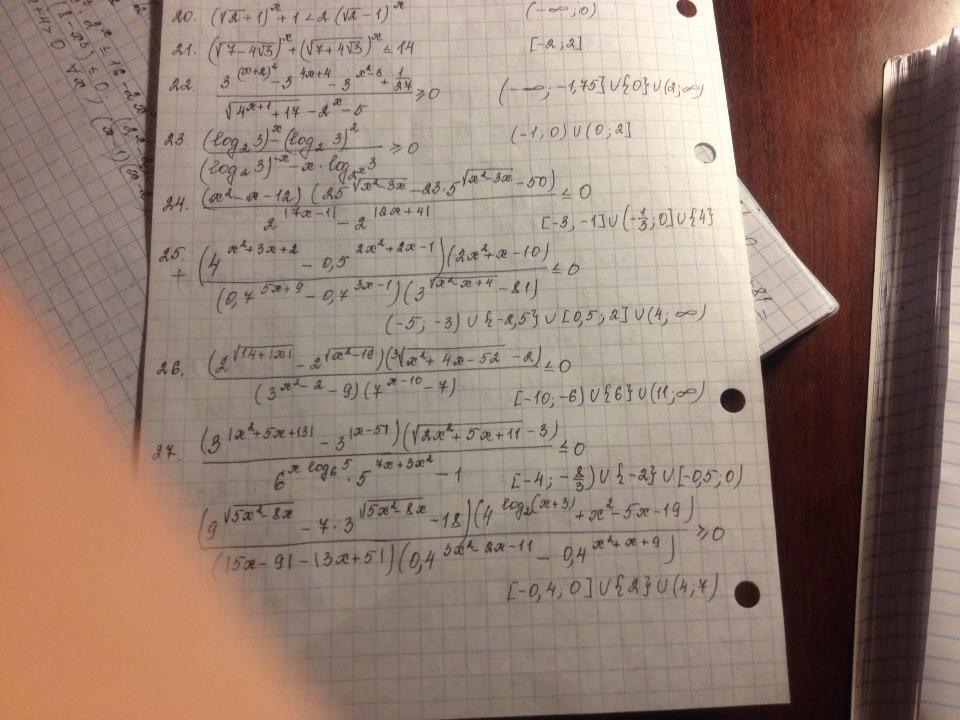 20. (√2+1)^x + 1 < 2 (√2-1)^x (-∞; 0)
21. (√7-4√3)^x + (√7+4√3)^x ≤ 14 [-2; 2]
22. (3^(x+2)^2 - 3^(4x+4) - 3^(x^2-3) + 1/27) / (√(4^(x+1)+17) - 2^x - 5) ≥ 0 (-∞; -1,75] ∪ {0} ∪ (2; ∞)
23. ((log_2 3)^x - (log_2 3)^2) / ((log_2 3)^-x - x·log_(2^x) 3) ≥ 0 (-1; 0) ∪ (0; 2]
24. (x^2-x-12)(25^√(x^2-3x) - 23·5^√(x^2-3x) - 50) / (2^|7x-1| - 2^|2x+4|) ≤ 0
[-3, -1] ∪ (-1/3; 0] ∪ {4}
25. (4^(x^2+3x+2) - 0,5^(2x^2+2x-1))(2x^2+x-10) / ((0,7^(5x+9) - 0,7^(3x-1))(3^√(x^2-x+4) - 81)) ≤ 0
(-5; -3) ∪ {-2,5} ∪ [0,5; 2] ∪ (4; ∞)
26. (2^√(14+|x|) - 2^√(x^2-16))(∛(x^2+4x-52) - 2) / ((3^(x^2-2) - 9)(7^(x-10) - 7)) ≤ 0
[-10; -6) ∪ {6} ∪ (11; ∞)
27. (3^|x^2+5x+3| - 3^|x-5|)(√(2x^2+5x+11) - 3) / (6^(x log_6 5)·5^(7x+3x^2) - 1) ≤ 0
[-4; -8/3) ∪ {-2} ∪ [-0,5; 0)
(9^√(5x^2-8x) - 7·3^√(5x^2-8x) - 18)(4^log_2(x+3) + x^2-5x-19) / ((|5x-9| - |3x+5|)(0,4^(3x^2-2x-11) - 0,4^(x^2+x+9))) ≥ 0
[-0,4; 0] ∪ {2} ∪ (4; 7)